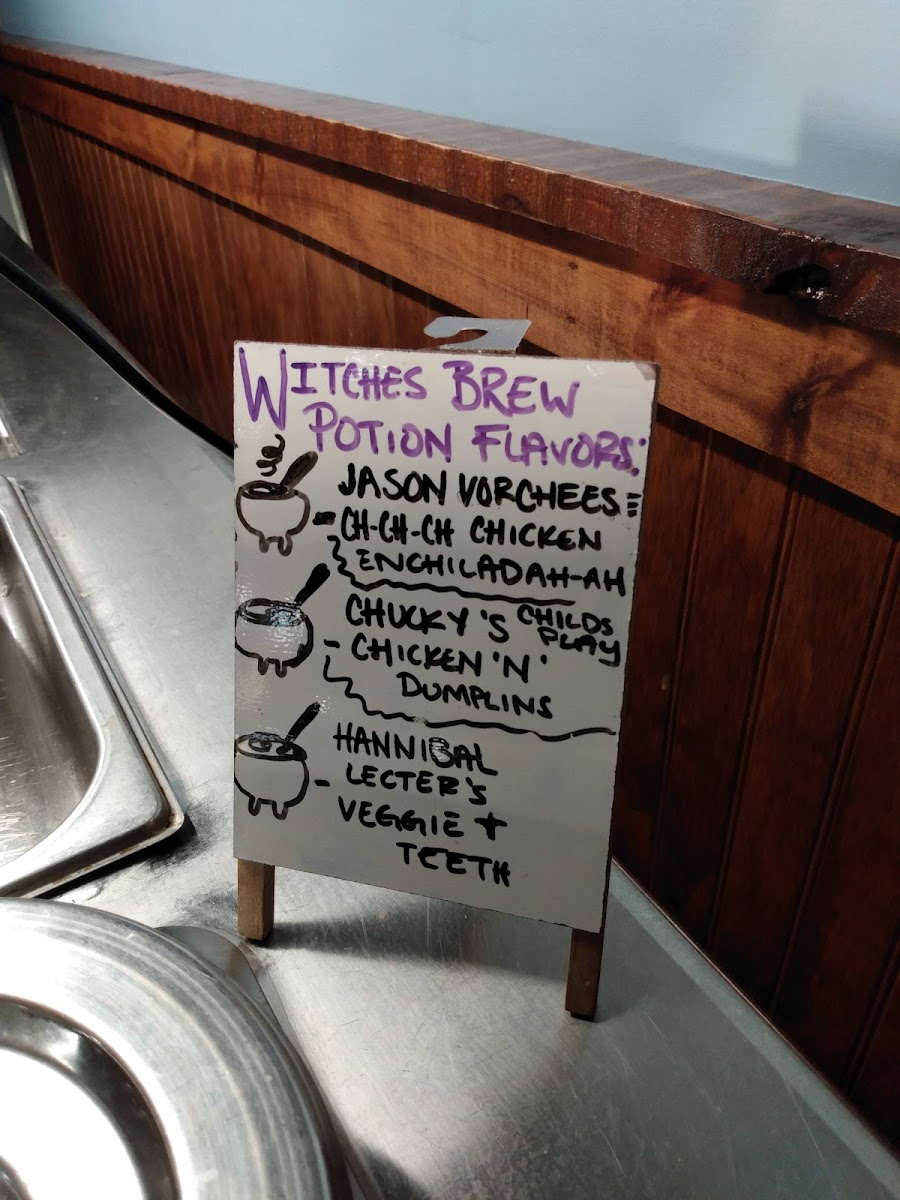 WITCHES BREW
POTION FLAVORS:
JASON VORCHEES
CH-CH-CH CHICKEN
ENCHILADAH-AH
CHUCKY'S CHILDS
PLAY
CHICKEN 'N'
DUMPLINS
HANNIBAL
LECTER'S
VEGGIE +
TEETH